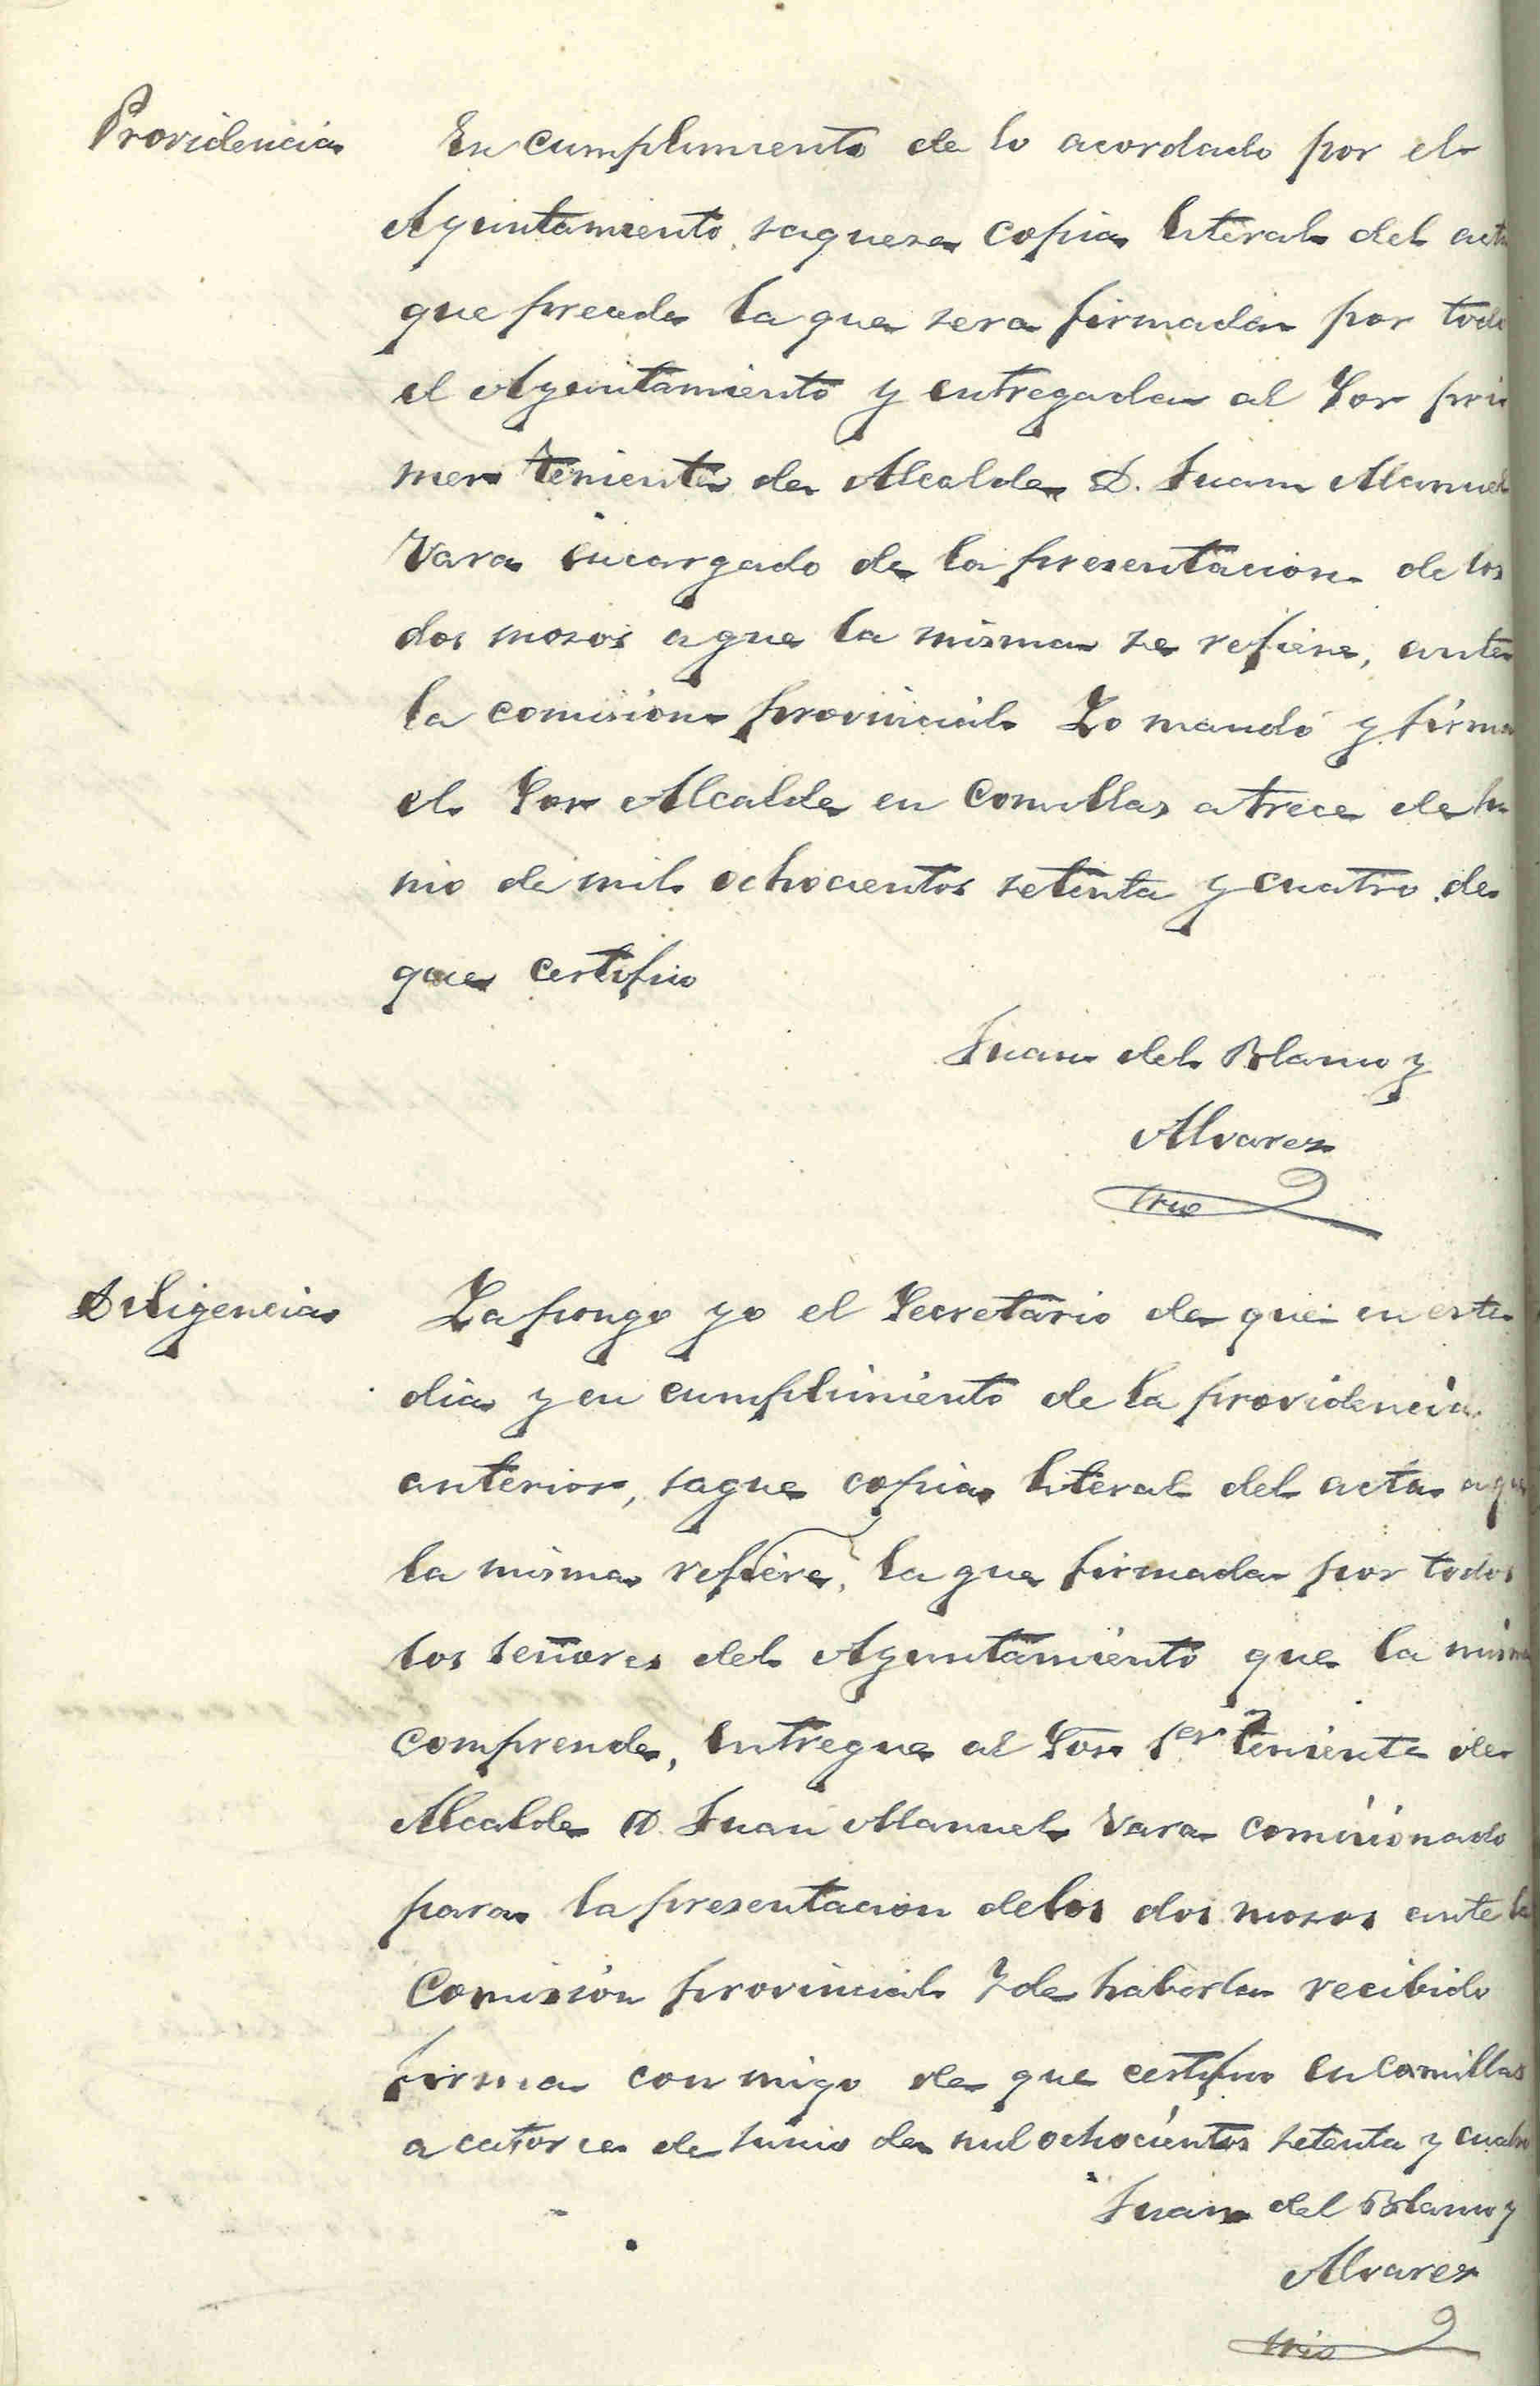 Providencia
En cumplimiento de lo acordado por el
Ayuntamiento, saquese copia literal del acta
que precede la que sera firmada por todo
el Ayuntamiento y entregada al Sor pri
mer teniente de Alcalde D. Juan Manuel
Vara encargado de la presentacion de los
dos mozos a que la misma se refiere, ante
la comision provincial Lo mandó y firma
el Sor Alcalde en Comillas a trece de Ju
nio de mil ochocientos setenta y cuatro de
que certifico
Juan del Blanco y
Alvarez
Srio
Diligencia
La pongo yo el Secretario de que en este
dia y en cumplimiento de la providencia
anterior, saque copia literal del acta a que
la misma refiere, la que firmada por todos
los señores del Ayuntamiento que la misma
comprende, entregue al Sor 1er teniente de
Alcalde D. Juan Manuel Vara comisionado
para la presentacion de los dos mozos ante la
Comision provincial y de haberla recibido
firma conmigo de que certifico en Comillas
a catorce de Junio de mil ochocientos setenta y cuatro
Juan del Blanco y
Alvarez
Srio